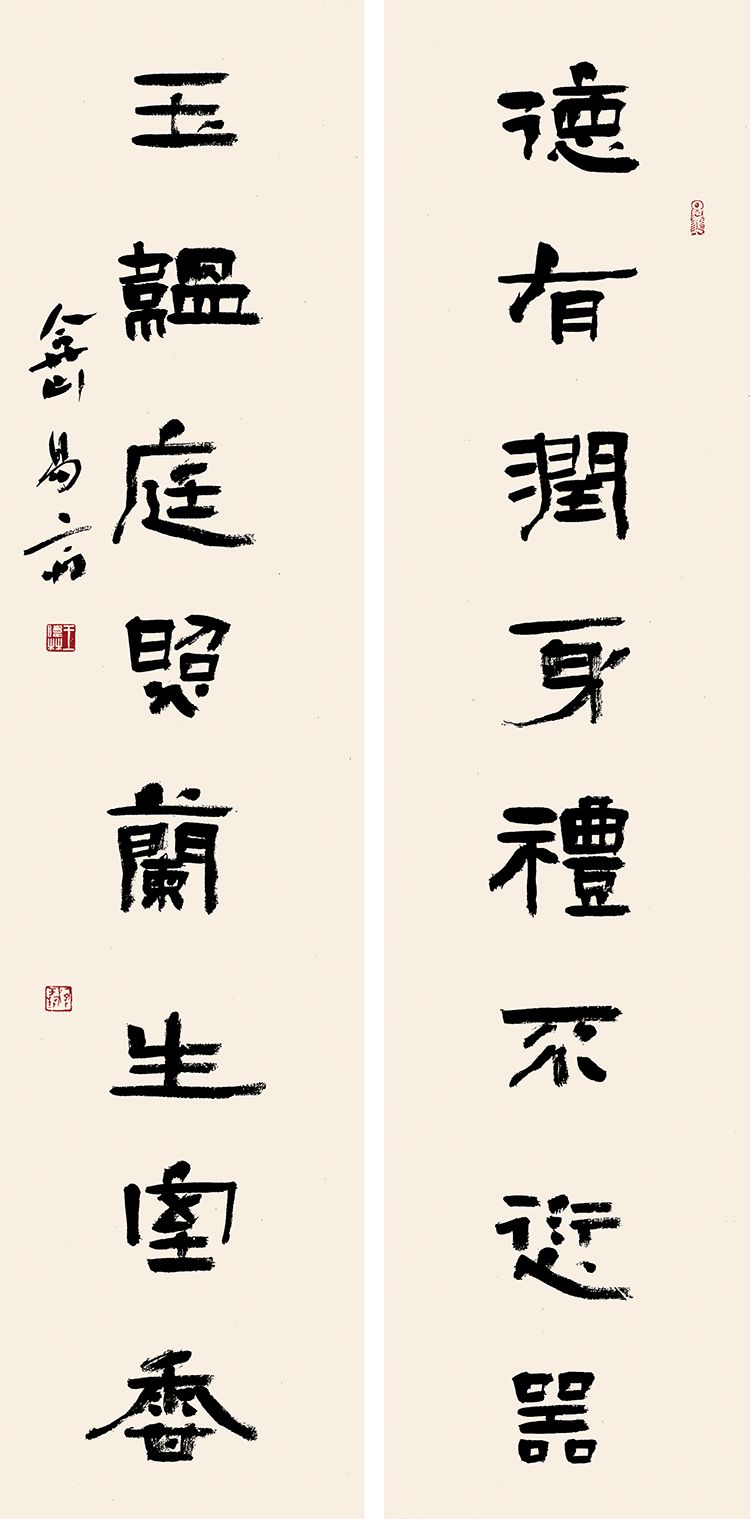 德有潤身禮不愆器
玉韞庭照蘭生室香